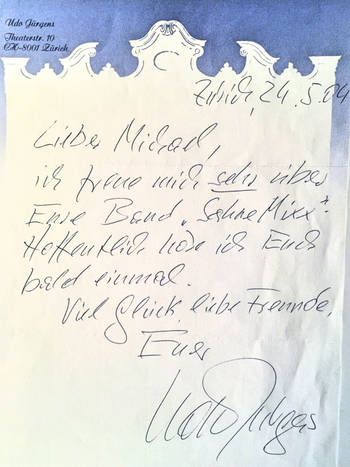 Udo Jürgens
Theaterstr. 10
CH-8001 Zürich
Zürich, 24.5.04
Lieber Michael,
ich freue mich sehr über
Eure Band „SahneMixx“.
Hoffentlich höre ich Euch
bald einmal.
Viel Glück, liebe Freunde,
Euer
Udo Jürgens